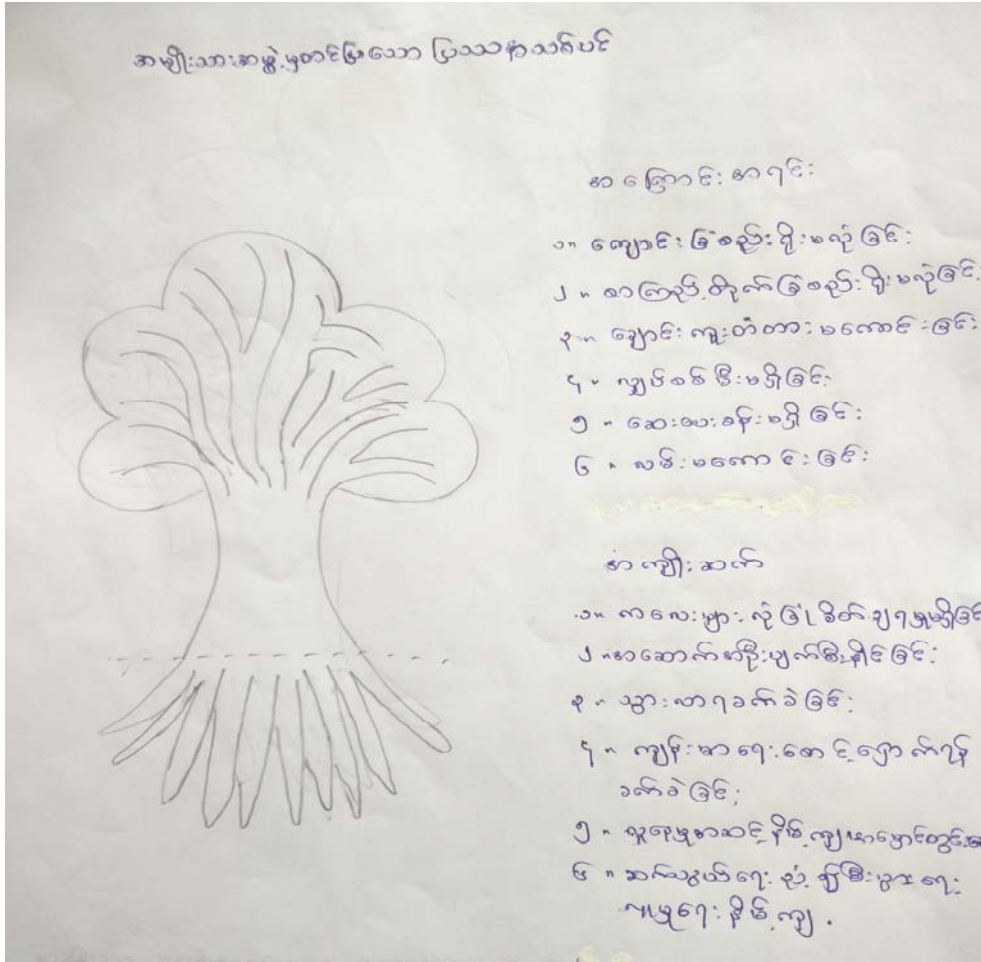 အမျိုးသားအဖွဲ့မှတင်ပြသော ပြဿနာသစ်ပင်
အကြောင်းအရင်း
၁။ ကျောင်းခြံစည်းရိုးမလုံခြင်း
၂။ စာကြည့်တိုက်ခြံစည်းရိုးမလုံခြင်း
၃။ ချောင်းကူးတံတားမကောင်းခြင်း
၄။ လျှပ်စစ်မီးမရှိခြင်း
၅။ ဆေးပေးခန်းမရှိခြင်း
၆။ လမ်းမကောင်းခြင်း
အကျိုးဆက်
၁။ ကလေးများလုံခြုံစိတ်ချရမှုမရှိခြင်း
၂။ အဆောက်အဦးပျက်စီးနိုင်ခြင်း
၃။ သွားလာရခက်ခဲခြင်း
၄။ ကျန်းမာရေးစောင့်ရှောက်ရန်
ခက်ခဲခြင်း
၅။ လူနေမှုအဆင့်နိမ့်ကျ အမှောင်တွင်း
၆။ ဆက်သွယ်ရေးနှင့်စီးပွားရေး
လူမှုရေးနိမ့်ကျ.